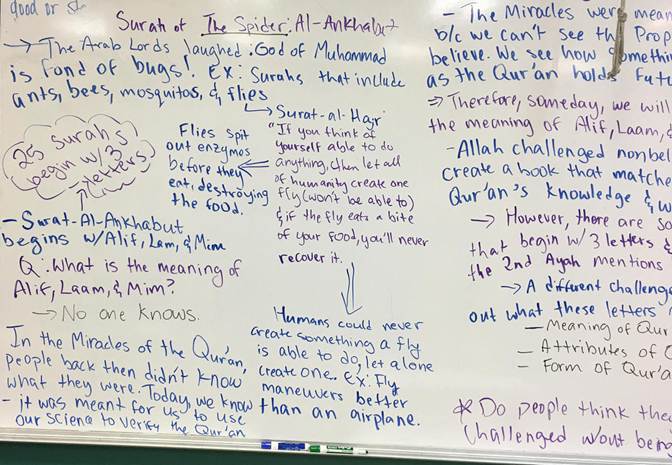 good or
Surah of The Spider: Al-Ankhabut
→ The Arab Lords laughed: God of Muhammad
is fond of bugs! Ex: Surahs that include
ants, bees, mosquitos, & flies
25 Surahs
begin w/ 3
letters
- Surat-Al-Ankhabut
begins w/ Alif, Lam, & Mim
Q: What is the meaning of
Alif, Laam, & Mim?
→ No one knows.
In the Miracles of the Qur'an,
people back then didn't know
what they were. Today, we know
- it was meant for us to use
our science to verify the Qur'an
Flies spit
out enzymes
before they
eat, destroying
the food.
→ Surat-al-Hajr
"If you think of
yourself able to do
anything, then let all
of humanity create one
fly (won't be able to)
& if the fly eats a bite
of your food, you'll never
recover it.
Humans could never
create something a fly
is able to do, let alone
create one. Ex: Fly
maneuvers better
than an airplane.
- The Miracles were
b/c we can't see the
believe. We see how
as the Qur'an holds
⇒ Therefore, someday, we will
the meaning of Alif, Laam, &
- Allah challenged
create a book that
Qur'an's knowledge &
→ However, there are
that begin w/ 3 letters &
the 2nd Ayah mentions
→ A different
out what these letters
- Meaning of
- Attributes of
- Form of
* Do people think
challenged w/out